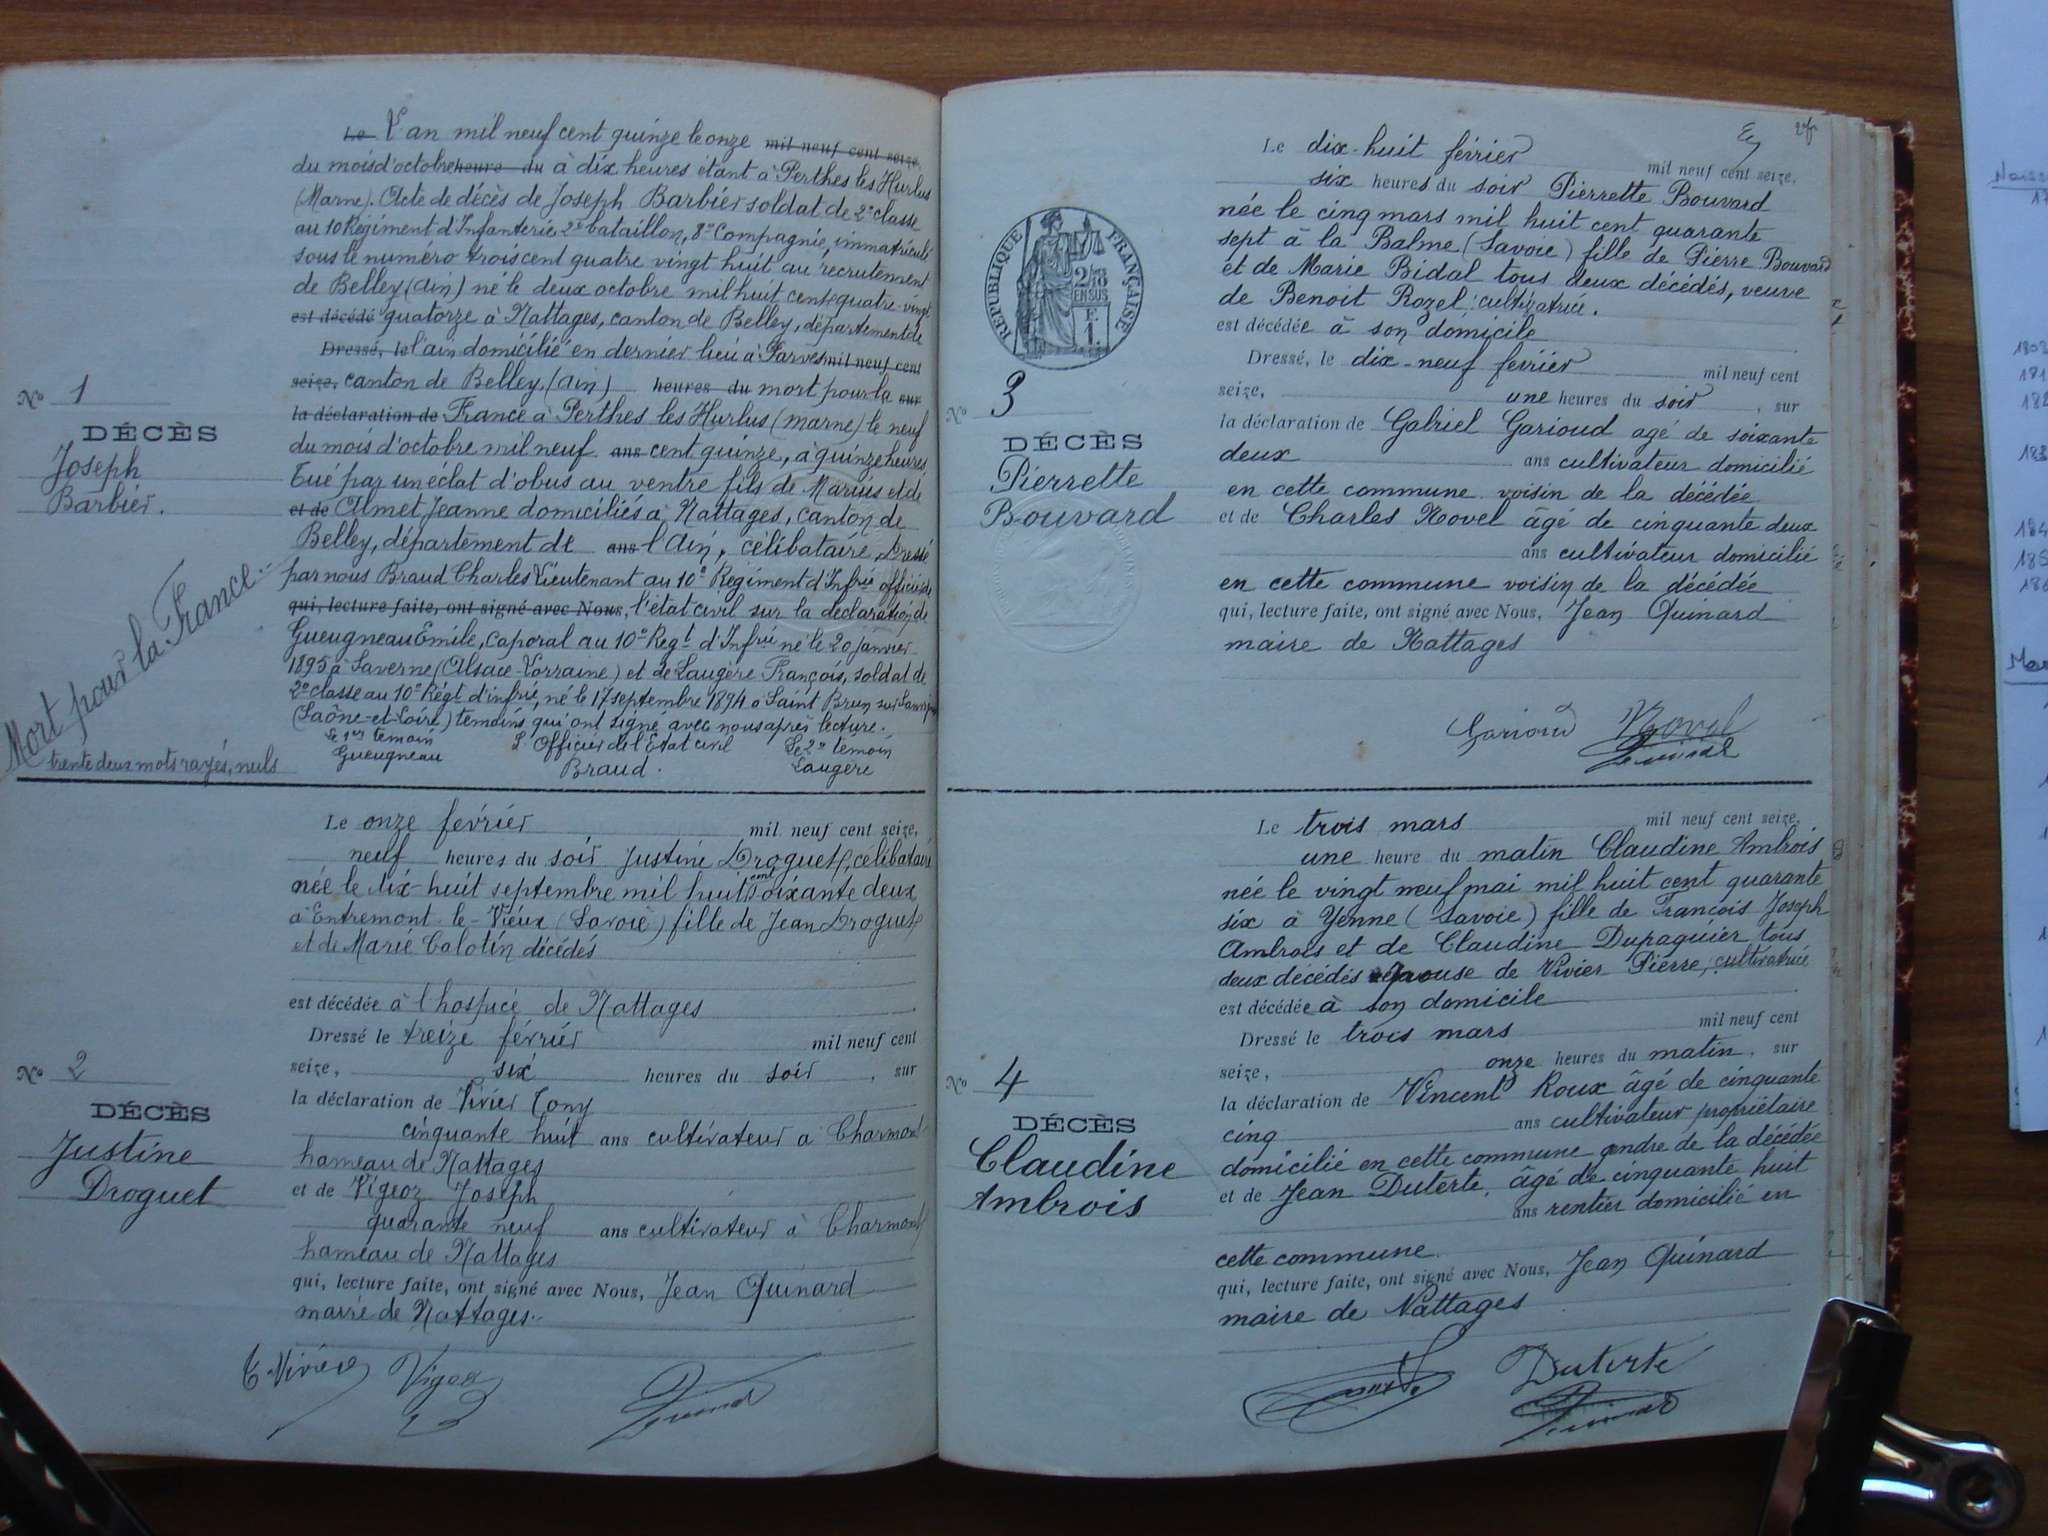 Le L'an mil neuf cent quinze le onze mil neuf cent seize,
du mois d'octobre heure du à dix heures étant à Perthes les Hurlus
(Marne). Acte de décès de Joseph Barbier soldat de 2e classe
au 10 Régiment d'Infanterie 2e bataillon, 8e Compagnie, immatriculé
sous le numéro trois cent quatre vingt huit au recrutement
de Belley (Ain) né le deux octobre mil huit cent quatre-vingt
est décédé quatorze à Nattages, canton de Belley, département de
Dressé, le l'ain domicilié en dernier lieu à Parves mil neuf cent
seize, canton de Belley (Ain) heures du mort pour la sur
la déclaration de France à Perthes les Hurlus (Marne) le neuf
du mois d'octobre mil neuf ans cent quinze, à quinze heures
Tué par un éclat d'obus au ventre fils de Marius et de
et de Almet Jeanne domiciliés à Nattages, canton de
Belley, département de ans l'Ain, célibataire, Dressé
par nous Braud Charles Lieutenant au 10e Régiment d'Infrie officier de
qui, lecture faite, ont signé avec Nous, l'état civil sur la déclaration de
Gueugneau Emile, caporal au 10e Régt d'Infrie né le 20 janvier
1895 à Saverne (Alsace-Lorraine) et de Laugère François, soldat de
2e classe au 10e Régt d'infrie, né le 17 septembre 1894 à Saint Brun sur
(Saône-et-Loire) témoins qui ont signé avec nous après lecture.
Le 1er témoin L'Officier de l'Etat civil Le 2e témoin
Gueugneau Braud. Laugère
No 1
DÉCÈS
Joseph
Barbier.
Mort pour la France.
trente deux mots rayés, nuls
Le onze février mil neuf cent seize,
neuf heures du soir Justine Droguet, célibataire
née le dix-huit septembre mil huit cent soixante deux
à Entremont-le-Vieux (Savoie) fille de Jean Droguet
et de Marie Calotin décédés
est décédée à l'hospice de Nattages
Dressé le treize février mil neuf cent
seize, six heures du soir, sur
la déclaration de Vivier Tony
cinquante huit ans cultivateur à Charmont
hameau de Nattages
et de Vigeoz Joseph
quarante neuf ans cultivateur à Charmont
hameau de Nattages
qui, lecture faite, ont signé avec Nous, Jean Quinard
maire de Nattages.
No 2
DÉCÈS
Justine
Droguet
T. Vivier Vigeoz Quinard
27
Le dix-huit février mil neuf cent seize,
six heures du soir Pierrette Bouvard
née le cinq mars mil huit cent quarante
sept à la Balme (Savoie) fille de Pierre Bouvard
et de Marie Bidal tous deux décédés, veuve
de Benoit Rozel, cultivatrice.
est décédée à son domicile
Dressé, le dix-neuf février mil neuf cent
seize, une heures du soir, sur
la déclaration de Gabriel Garioud agé de soixante
deux ans cultivateur domicilié
en cette commune voisin de la décédée
et de Charles Novel âgé de cinquante deux
ans cultivateur domicilié
en cette commune voisin de la décédée
qui, lecture faite, ont signé avec Nous, Jean Quinard
maire de Nattages
RÉPUBLIQUE FRANÇAISE
2/10
EN SUS
F.
1.
No 3
DÉCÈS
Pierrette
Bouvard
Garioud Novel
Quinard
Le trois mars mil neuf cent seize,
une heure du matin Claudine Ambrois
née le vingt neuf mai mil huit cent quarante
six à Yenne (Savoie) fille de François Joseph
Ambrois et de Claudine Dupaquier tous
deux décédés épouse de Vivier Pierre, cultivatrice
est décédée à son domicile
Dressé le trois mars mil neuf cent
seize, onze heures du matin, sur
la déclaration de Vincent Roux âgé de cinquante
cinq ans cultivateur propriétaire
domicilié en cette commune gendre de la décédée
et de Jean Duterte, âgé de cinquante huit
ans rentier domicilié en
cette commune
qui, lecture faite, ont signé avec Nous, Jean Quinard
maire de Nattages
No 4
DÉCÈS
Claudine
Ambrois
Duterte
Quinard